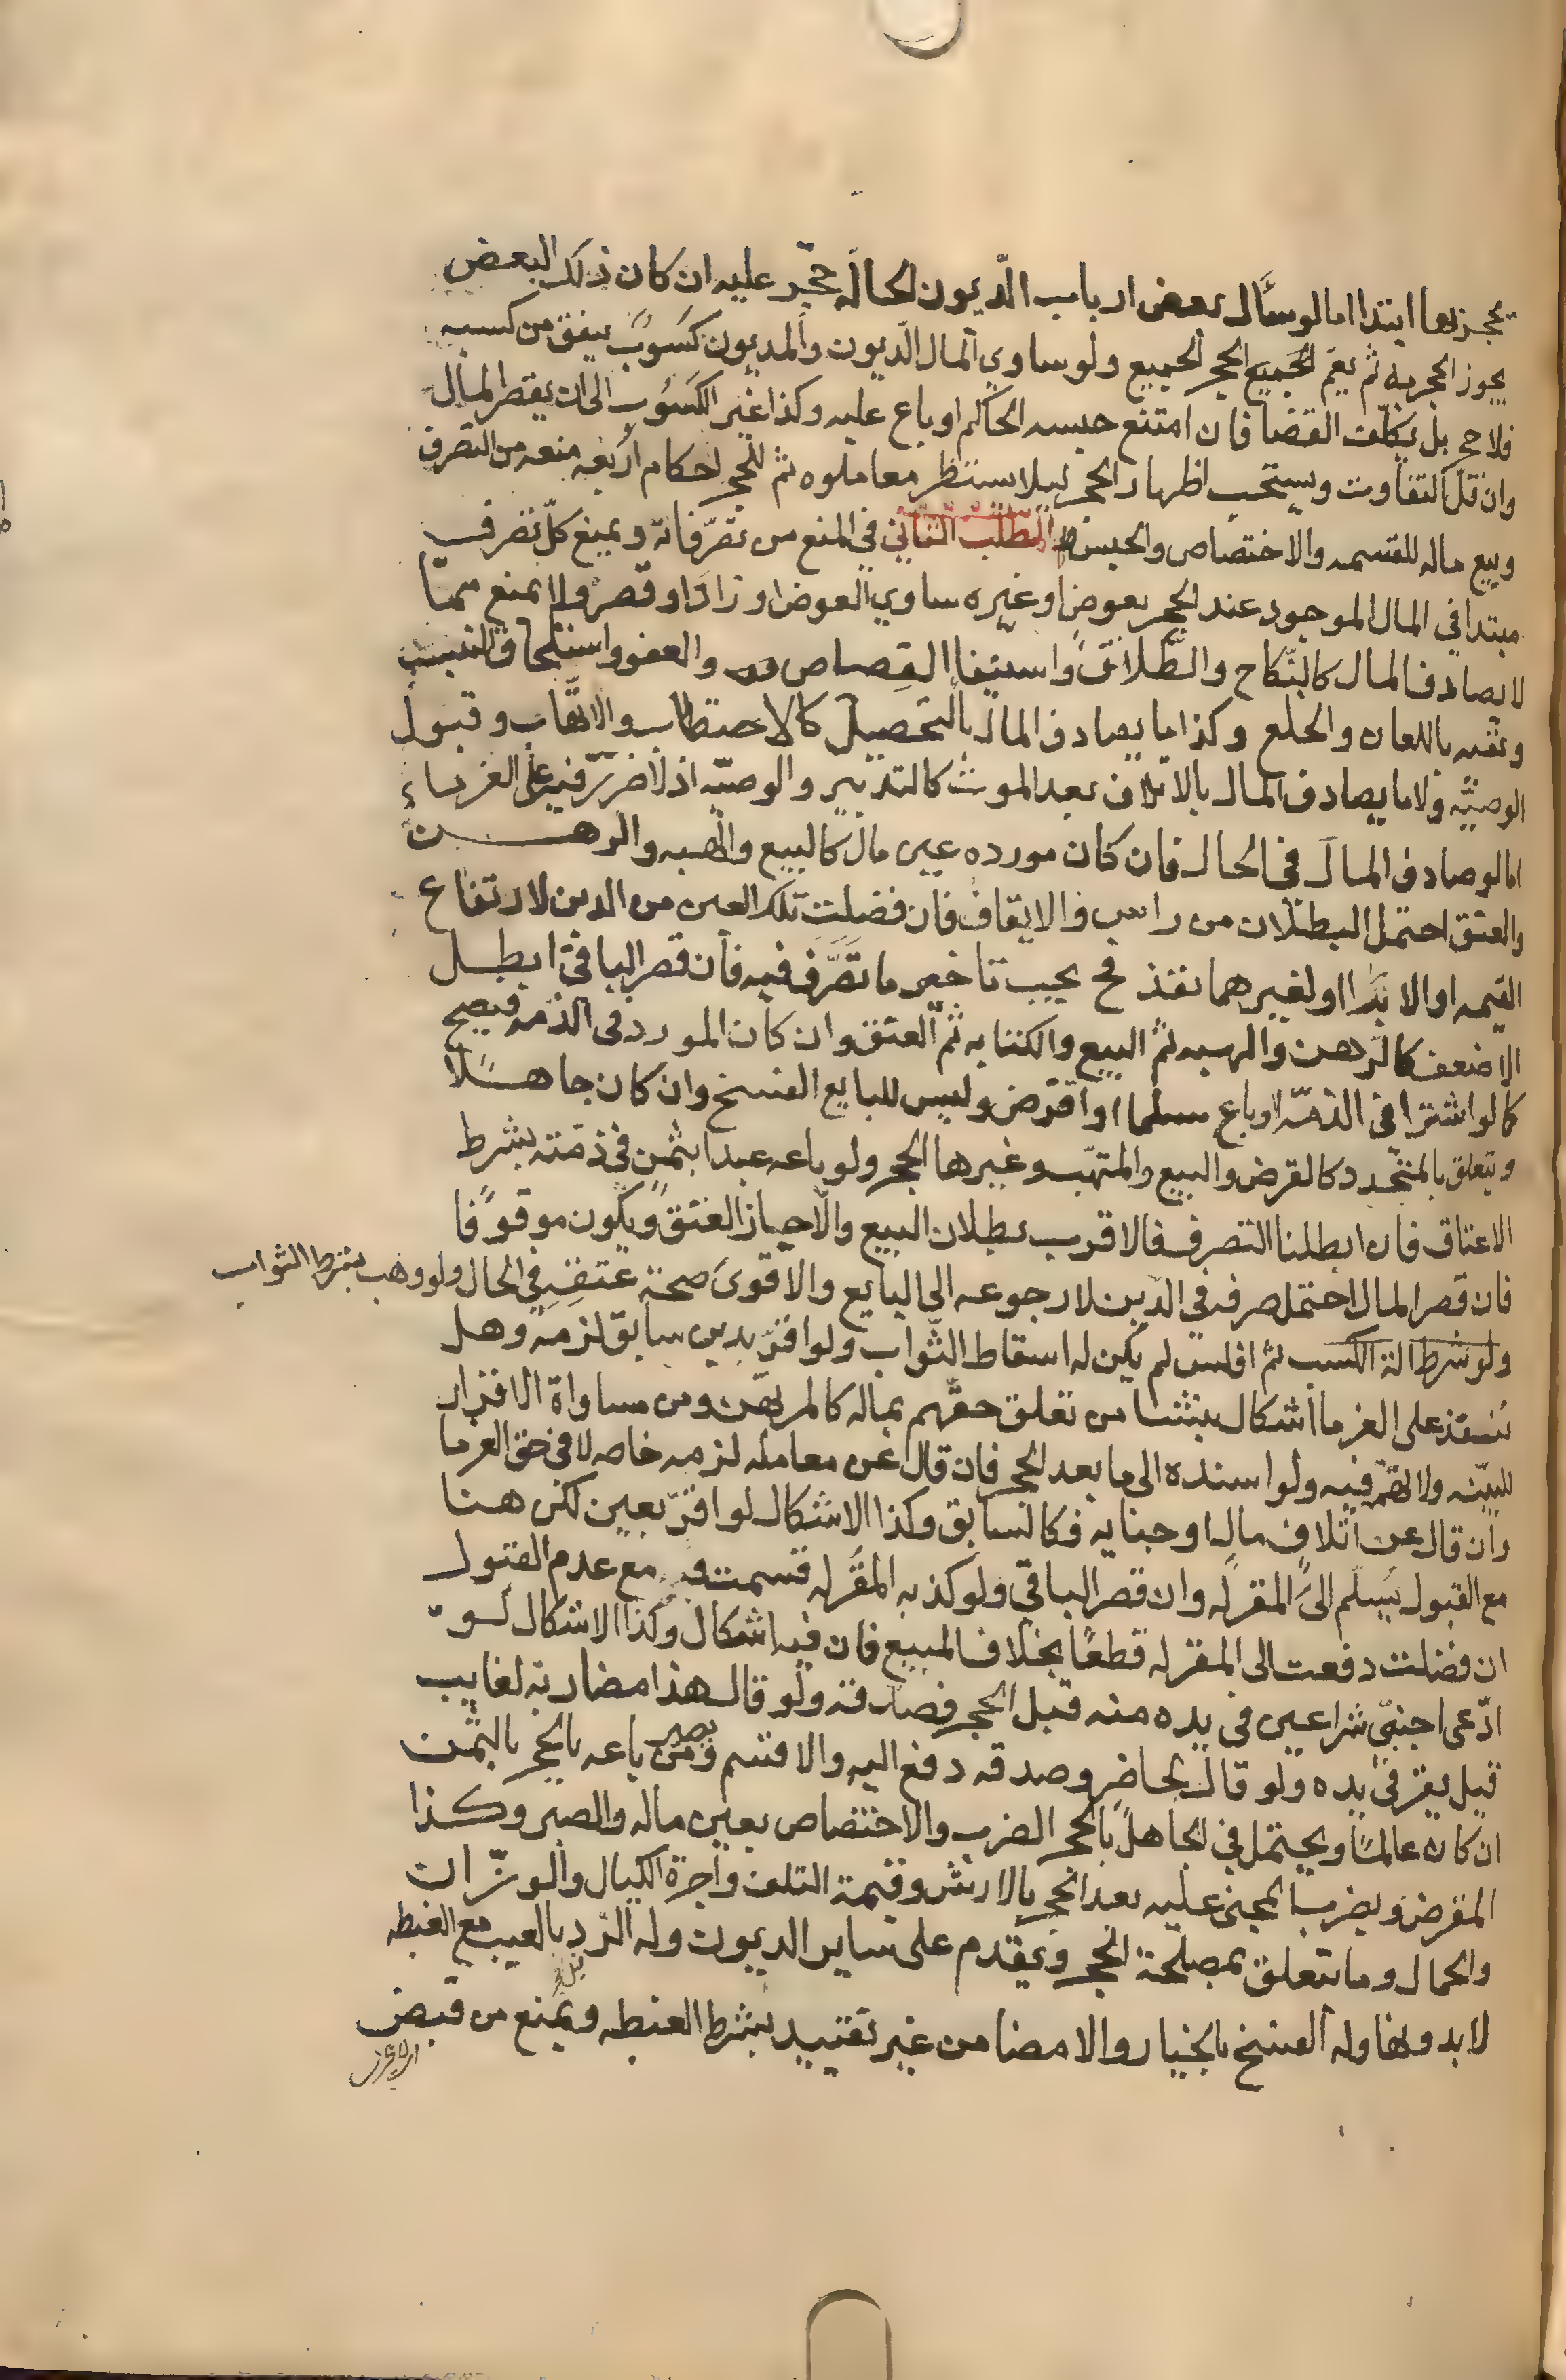 يحجز بها ابتدا اما لو سأل بعض ارباب الدّيون الحالّه حجّر عليه ان كان ذلك البعض
يجوز الحجر به ثم يعمّ الجميع الحجر الجميع ولو ساوي المال الديون والمديون كسوبٌ ينفق من كسبه
فلا حجر بل يكلّف القضا فان امتنع حبسه الحاكم او باع عليه وكذا غير الكسوب الى ان يقصر المال
وان قلّ التفاوت ويستحب اظهار الحجر ليلا يستنظر معاملوه ثم للحجر احكام اربعه منعه من التصرف
وبيع ماله للقسمه والاختصاص والحبس المطلب الثاني في المنع من تصرّفاته ويمنع كلّ تصرف
مبتدا في المال الموجود عند الحجر بعوض او غيره ساوي العوض او زاد او قصر ولا يمنع ممّا
لا يصادف المال كالنّكاح والطلاق واستيفا القصاص والعفو واستلحاق النسب
ونفيه باللعان والخلع وكذا ما يصادف المال بالتحصيل كالاحتطاب والاتهاب وقبول
الوصيّه ولا ما يصادف المال بالاتلاف بعد الموت كالتدبير والوصيّه اذ لا ضرر فيه على الغرماء
اما لو صادف المال في الحال فان كان مورده عين مال كالبيع والهبه والرهن
والعتق احتمل البطلان من راس والايقاف فان فضلت تلك العين من الدين لارتفاع
القيمه او الابرا او لغيرهما نفذ فح يجب تاخير ما تصرّف فيه فان قصر الباقي ابطل
الاضعف كالرهن والهبه ثم البيع والكتابه ثم العتق وان كان المورد في الذمه فيصح
كما لو اشترا في الذمّه او باع سلما او اقترض وليس للبايع الفسخ وان كان جاهلا
ويتعلق بالمتجّدد كالقرض والبيع والمتهب وغيرها الحجر ولو باعه عبدا بثمن في ذمّته بشرط
الاعتاق فان ابطلنا التصرف فالاقرب بطلان البيع والّا جاز العتق ويكون موقوفا
فان قصر المال احتمل صرفه في الدّين لا رجوعه الى البايع والاقوى صحة عتقه في الحال ولو وهب بشرط الثواب
ولو شرط الة الكسب ثم افلس لم يكن له اسقاط الثّواب ولو اقرّ بدين سابق لزمه وهل
ينفذ على الغرما اشكال ينشا من تعلق حقهم بماله كالمرتهن ومن مساواة الاقرار
للبيّنه ولا تهمه فيه ولو اسنده الى ما بعد الحجر فان قال عن معامله لزمه خاصه لا في حق الغرما
وان قال عن اتلاف مال او جنايه فكالسابق وكذا الاشكال لو اقرّ بعين لكن هنا
مع القبول يسلم الى المقر له وان قصر الباقي ولو كذبه المقر له قسمت ومع عدم القبول
ان فضلت دفعت الى المقر له قطعًا بخلاف المبيع فان فيه اشكال وكذا الاشكال لو
ادّعى اجنبيّ شرا عين في يده منه قبل الحجر فصدقه ولو قال هذا مضاربة لغايب
قيل يقر في يده ولو قال لحاضر وصدقه دفع اليه والا قسم ويصبر من باعه بالحجر بالثمن
ان كان عالمًا ويحتمل في الجاهل بالحجر الضرب والاختصاص بعين ماله والصبر وكذا
المقرض ويضرب المجني عليه بعد الحجر بالارش وقيمة التلف واجرة الكيال والوزّان
والحمال وما يتعلق بمصلحة الحجر ويقدم على ساير الديون وله الرد بالعيب مع الغبطه
لا بدونها وله الفسخ بالخيار والامضا من غير تقييد بشرط الغبطه ويمنع من قبض